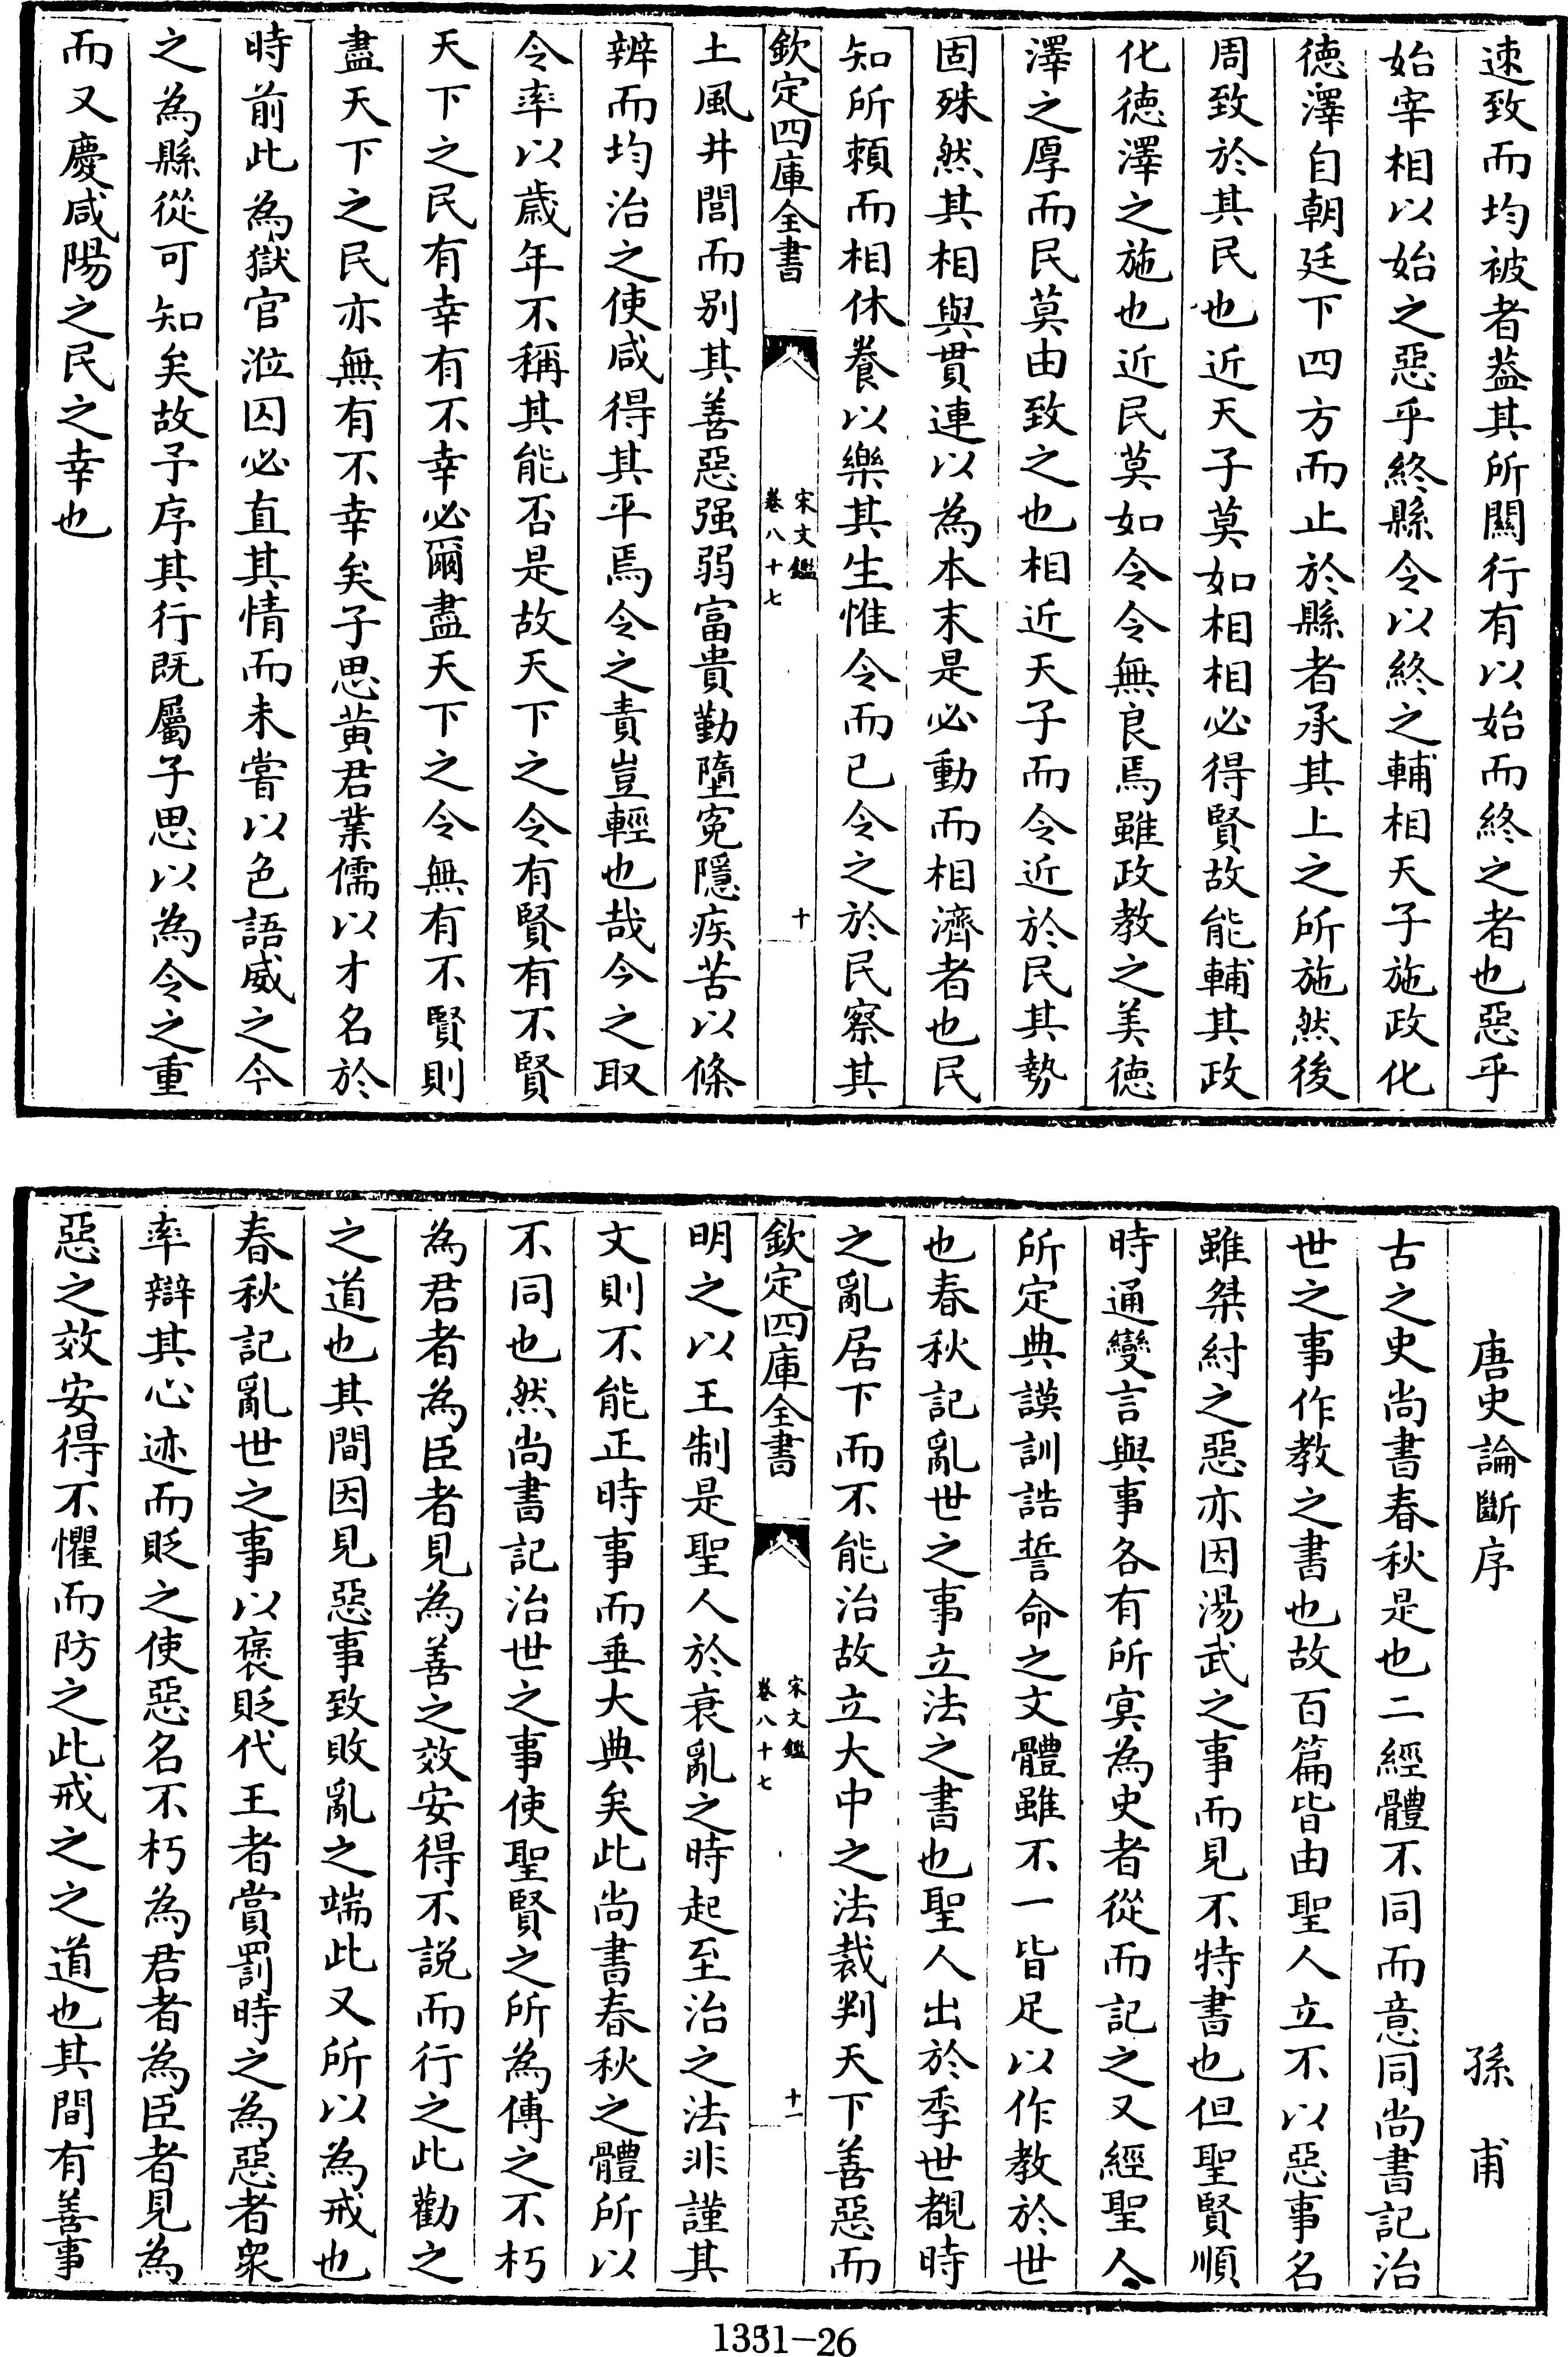 速致而均被者葢其所闗行有以始而終之者也惡乎
始宰相以始之惡乎終縣令以終之輔相天子施政化
德澤自朝廷下四方而止於縣者承其上之所施然後
周致於其民也近天子莫如相相必得賢故能輔其政
化德澤之施也近民莫如令令無良焉雖政教之美德
澤之厚而民莫由致之也相近天子而令近於民其勢
固殊然其相與貫連以為本末是必動而相濟者也民
知所頼而相休養以樂其生惟令而已令之於民察其
欽定四庫全書
宋文鑑
卷八十七
十
土風井閭而别其善惡强弱富貴勤墮寃隱疾苦以條
辨而均治之使咸得其平焉令之責豈輕也哉今之取
令率以歲年不稱其能否是故天下之令有賢有不賢
天下之民有幸有不幸必爾盡天下之令無有不賢則
盡天下之民亦無有不幸矣子思黄君業儒以才名於
時前此為獄官涖囚必直其情而未嘗以色語威之今
之為縣從可知矣故予序其行既屬子思以為令之重
而又慶咸陽之民之幸也
唐史論斷序
孫甫
古之史尚書春秋是也二經體不同而意同尚書記治
世之事作教之書也故百篇皆由聖人立不以惡事名
雖桀紂之惡亦因湯武之事而見不特書也但聖賢順
時通變言與事各有所寅為史者從而記之又經聖人
所定典謨訓誥誓命之文體雖不一皆足以作教於世
也春秋記亂世之事立法之書也聖人出於季世覩時
之亂居下而不能治故立大中之法裁判天下善惡而
欽定四庫全書
宋文鑑
卷八十七
十一
明之以王制是聖人於衰亂之時起至治之法非謹其
文則不能正時事而垂大典矣此尚書春秋之體所以
不同也然尚書記治世之事使聖賢之所為傳之不朽
為君者為臣者見為善之效安得不説而行之此勸之
之道也其間因見惡事致敗亂之端此又所以為戒也
春秋記亂世之事以褒貶代王者賞罰時之為惡者衆
率辯其心迹而貶之使惡名不朽為君者為臣者見為
惡之效安得不懼而防之此戒之之道也其間有善事
1351-26